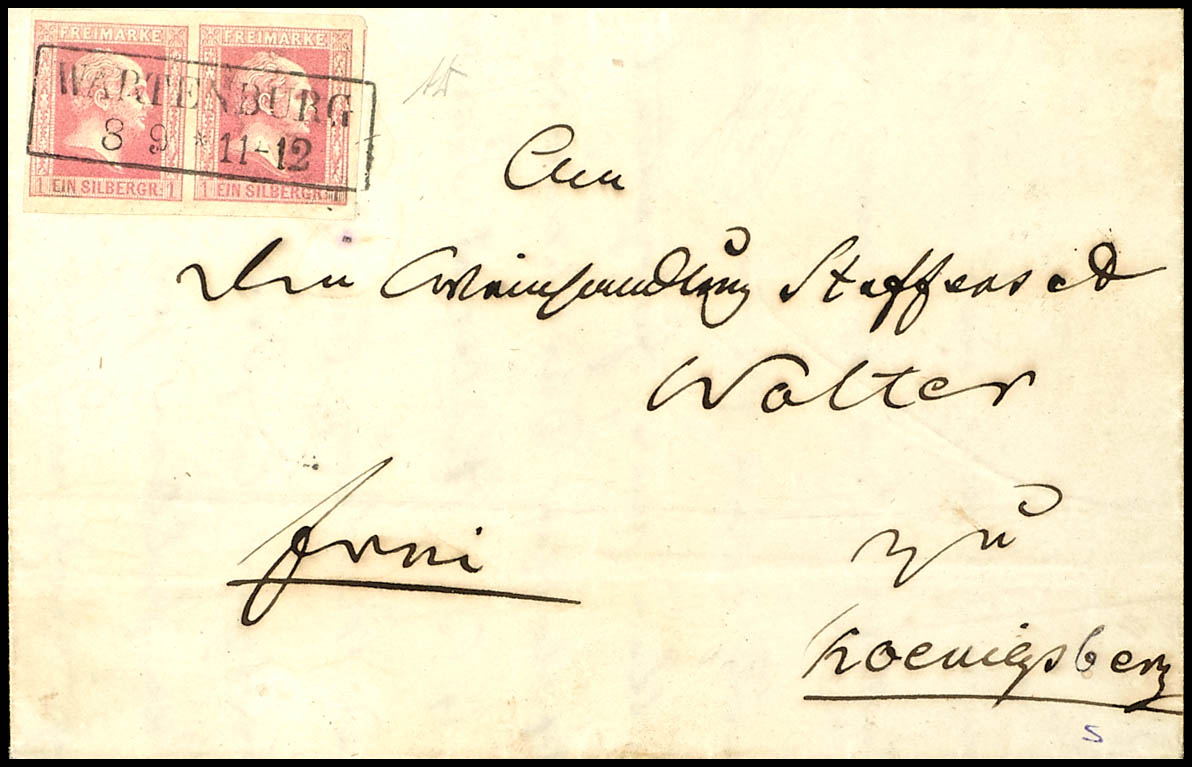 FREIMARKE FREIMARKE
WARTENBURG
8 9 * 11-12
1 EIN SILBERGR. 1 1 EIN SILBERGR. 1
An
die Weinhandlung Steffens et
Wolter
frei
zu
Koenigsberg
5